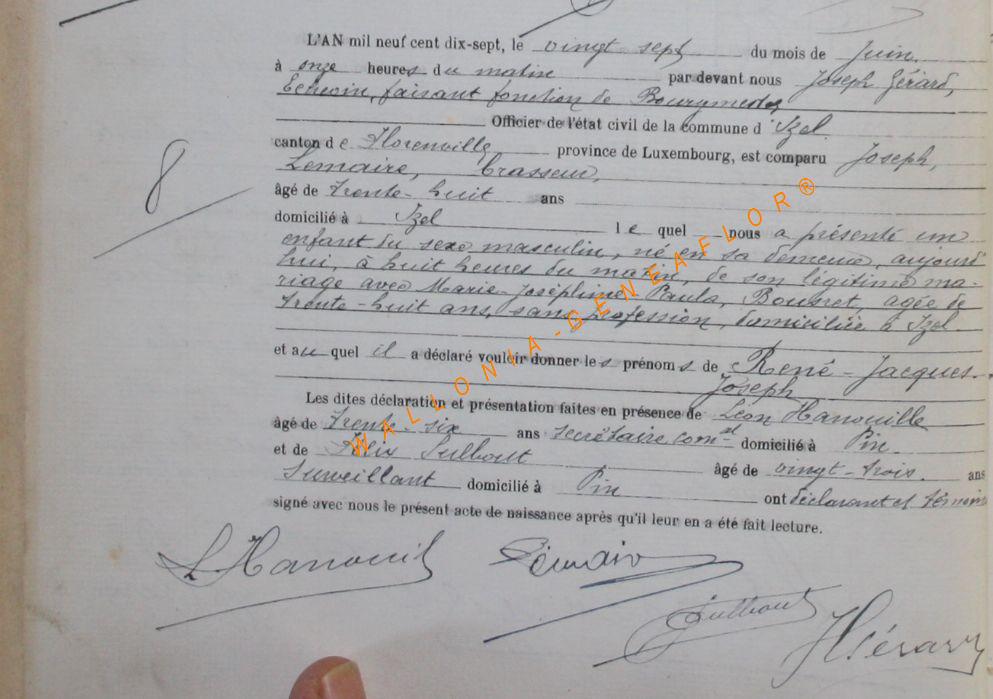 L'AN mil neuf cent dix-sept, le vingt sept du mois de Juin
à onze heures du matin par devant nous Joseph Gérard,
Echevin, faisant fonction de Bourgmestre,
Officier de l'état civil de la commune d'Izel
canton de Florenville, province de Luxembourg, est comparu Joseph,
Lemaire, brasseur,
8
âgé de trente-huit ans
domicilié à Izel lequel nous a présenté un
enfant du sexe masculin, né en sa demeure, aujourd'
hui, à huit heures du matin, de son légitime ma-
riage avec Marie-Joséphine-Paula, agée de
trente-huit ans, sans profession, domiciliée à Izel.
et auquel il a déclaré vouloir donner les prénoms de René-Jacques-
Joseph
Les dites déclaration et présentation faites en présence de Léon Hanouille
âgé de trente-six ans secrétaire comal domicilié à Pin
et de Félix Sulbout âgé de vingt-trois ans
Surveillant domicilié à Pin ont déclarant et témoins
signé avec nous le présent acte de naissance après qu'il leur en a été fait lecture.
WALLONIA-GENEAFLOR®
L Hanouil
Sulbout
J Gérard